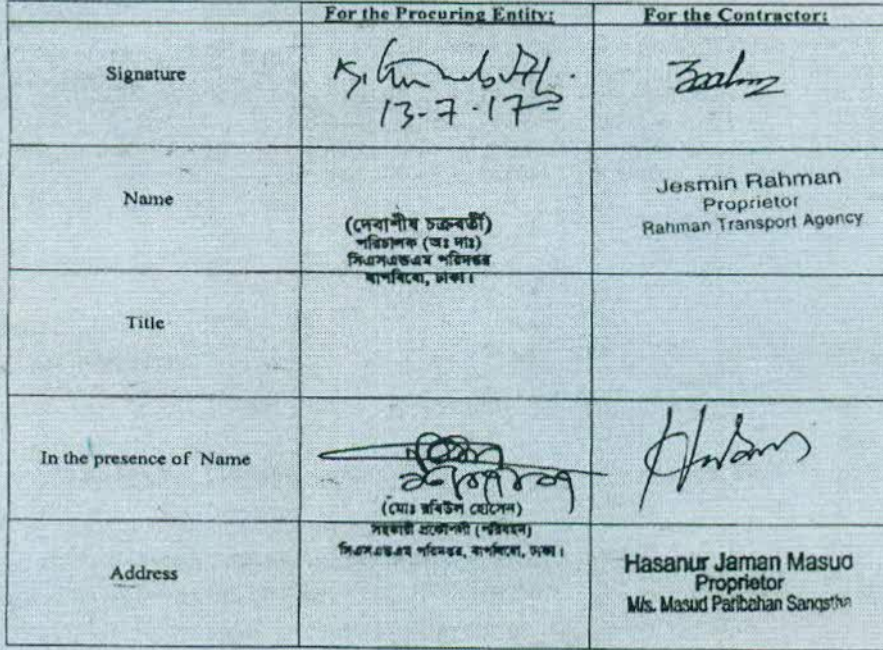 For the Procuring Entity:
For the Contractor:
Signature
13-7-17
Name
(দেবাশীষ চক্রবর্তী)
পরিচালক (অঃ দাঃ)
সিএসএন্ডএম পরিদপ্তর
বাপবিবো, ঢাকা।
Jesmin Rahman
Proprietor
Rahman Transport Agency
Title
In the presence of Name
(মোঃ রবিউল হোসেন)
সহকারী প্রকৌশলী (পরিবহন)
সিএসএন্ডএম পরিদপ্তর, বাপবিবো, ঢাকা।
Address
Hasanur Jaman Masud
Proprietor
M/s. Masud Paribahan Sangstha